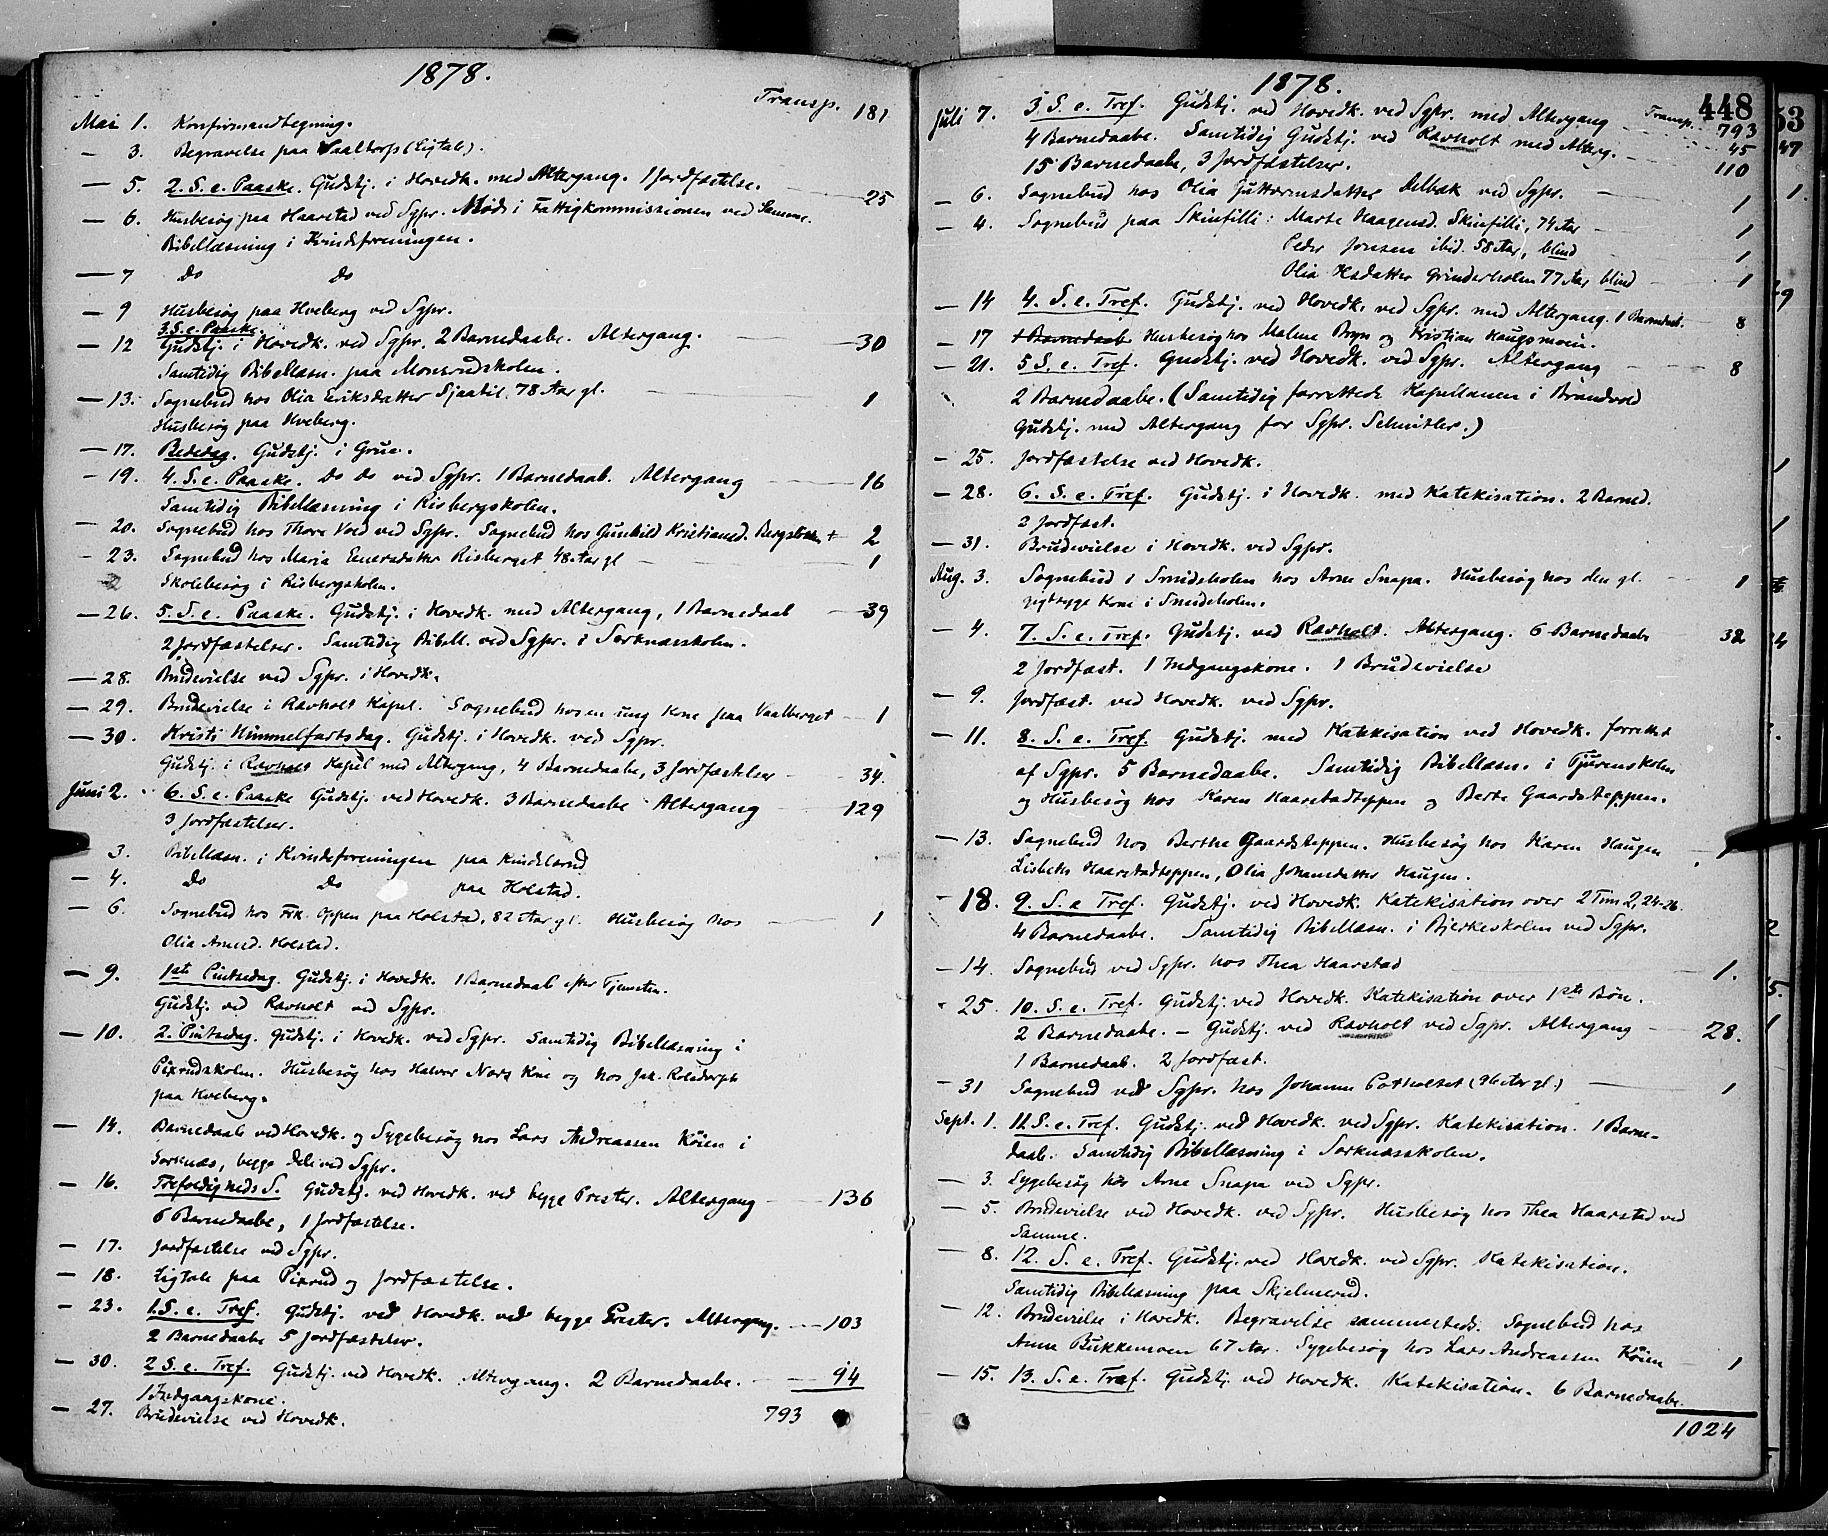 1878.
Transp. 181
Mai 1. Konfirmandtegning.
— 3. Begravelse paa Vaaltorp (Ligtale).
— 5. 2. S. e. Paaske. Gudstj. i Hovedk. med Altergang. 1 Jordfæstelse. 25
— 6. Husbesøg paa Haarstad ved Sgpr. Møde i Fattigkommissionen ved Samme.
Bibellæsning i Kvindeforeningen.
— 7 Do Do
— 9 Husbesøg paa Hveberg ved Sgpr.
3. S. e. Paaske.
— 12 Gudstj. i Hovedk. ved Sgpr. 2 Barnedaabe. Altergang. 30
Samtidig Bibellæsn. paa Monsrudskolen.
— 13. Sognebud hos Olia Eriksdatter Sjaatil, 78 Aar gl. 1
Husbesøg paa Hveberg.
— 17. Bededag. Gudstj. i Grue.
— 19. 4. S. e. Paaske. Do Do ved Sgpr. 1 Barnedaab. Altergang 16
Samtidig Bibellæsning i Risbergskolen.
— 20. Sognebud hos Thore Void ved Sgpr. Sognebud hos Gunhild Kristiansd. 2
— 23. Sognebud hos Maria Einersdatter Risberget 48 Aar gl 1
Skolebesøg i Risbergskolen.
— 26. 5. S. e. Paaske. Gudstj. i Hovedk. med Altergang, 1 Barnedaab 39
2 Jordfæstelser. Samtidig Bibell. ved Sgpr. i Sorknæsskolen.
— 28. Brudevielse ved Sgpr. i Hovedk.
— 29. Brudevielse i Ravholt Kapel. Sognebud hos en ung Kone paa Vaalberget 1
— 30. Kristi Himmelfartsdag. Gudstj. i Hovedk. ved Sgpr.
Gudstj. i Ravholt Kapel med Altergang, 4 Barnedaabe, 3 Jordfæstelser 34.
Juni 2. 6. S. e. Paaske Gudstj. ved Hovedk. 3 Barnedaabe Altergang 129
3 Jordfæstelser.
3. Bibellæsn. i Kvindeforeningen paa Kindelsrud
— 4. Do Do paa Holstad.
— 6. Sognebud hos Frk. Oppen paa Holstad, 82 Aar gl. Husbesøg hos 1
Olia Amud. Holstad.
— 9. 1ste Pintsedag. Gudstj. i Hovedk. 1 Barnedaab efter Tjenesten.
Gudstj. ved Ravholt ved Sgpr.
— 10. 2. Pintsedag. Gudstj. i Hovedk. ved Sgpr. Samtidig Bibellæsning i
Pixrudskolen. Husbesøg hos Halvor Kone og hos Jak.
paa Hveberg.
— 14. Barnedaab ved Hovedk. og Sygebesøg hos Lars Andreassen Köien i
Sorknæs, begge Dele ved Sgpr.
— 16. Trefoldigheds S. Gudstj. ved Hovedk. ved begge Prester. Altergang 136
6 Barnedaabe, 1 Jordfæstelse.
— 17. Jordfæstelse ved Sgpr.
— 18. Ligtale paa Pixrud og Jordfæstelse.
— 23. 1. S. e. Tref. Gudstj. ved Hovedk. ved begge Prester. Altergang. 103
2 Barnedaabe 5 Jordfæstelser.
— 30. 2 S. e. Tref. Gudstj. ved Hovedk. Altergang. 2 Barnedaabe. 94
1 Indgangskone.
— 27. Brudevielse ved Hovedk. 793
1878.
448
Transp. 793
Juli 7. 3. S. e. Tref. Gudstj. ved Hovedk. ved Sgpr. med Altergang 45
4 Barnedaabe. Samtidig Gudstj. ved Ravholt med Alterg. 110
15 Barnedaabe, 3 Jordfæstelser.
— 6. Sognebud hos Olia Guttormsdatter Delbæk ved Sgpr. 1
— 4. Sognebud paa Skinfilli: Marte Haagensd. Skinfilli, 74 Aar 1
Peder Jonsen ibid. 58 Aar, blind 1
Olia Hsdatter Grinderholen 77 Aar blind 1
— 14 4. S. e. Tref. Gudstj. ved Hovedk. ved Sgpr. med Altergang. 1 Barnedaab. 8
— 17 Husbesøg hos Malene Bryn og Kristian Haugsmoen.
— 21. 5 S. e. Tref. Gudstj. ved Hovedk. ved Sgpr. Altergang 8
2 Barnedaabe. (Samtidig forrettede Kapellanen i Brandvold
Gudstj. med Altergang for Sgpr. Schnitler.)
— 25. Jordfæstelse ved Hovedk.
— 28. 6. S. e. Tref. Gudstj. i Hovedk. med Katekisation. 2 Barned.
2 Jordfæst.
— 31. Brudevielse i Hovedk. ved Sgpr.
Aug. 3. Sognebud i Smideholen hos Arne Snapa. Husbesøg hos den gl. 1
gigtsyge Kone i Smideholen.
— 4. 7. S. e. Tref. Gudstj. ved Ravholt. Altergang. 6 Barnedaabe 32
2 Jordfæst. 1 Indgangskone. 1 Brudevielse
— 9. Jordfæst. ved Hovedk. ved Sgpr.
— 11. 8. S. e. Tref. Gudstj. med Katekisation ved Hovedk. forrettet
af Sgpr. 5 Barnedaabe. Samtidig Bibellæsn. i Tjurenskolen
og Husbesøg hos Karen Haarstadteppen og Berte Gaardsteppen.
— 13. Sognebud hos Berthe Gaardsteppen. Husbesøg hos Karen Haugen 1
Lisbeth Haarstadteppen, Olia Johansdatter Haugen.
— 18. 9. S. e Tref. Gudstj. ved Hovedk. Katekisation over 2 Tim 2, 24-26.
4 Barnedaabe. Samtidig Bibellæsn. i Bjerkeskolen ved Sgpr.
— 14. Sognebud ved Sgpr. hos Thea Haarstad 1.
25. 10. S. e. Tref. Gudstj. ved Hovedk. Katekisation over 1ste Bøn.
2 Barnedaabe. — Gudstj. ved Ravholt ved Sgpr. Altergang 28.
1 Barnedaab. 2 Jordfæst.
— 31 Sognebud ved Sgpr. hos Johanne (96 Aar gl.) 1
Sept. 1. 11 S. e. Tref. Gudstj. ved Hovedk. ved Sgpr. Katekisation. 1 Barne-
daab. Samtidig Bibellæsning i Sorknæsskolen.
— 3. Sygebesøg hos Arne Snapa ved Sgpr.
— 5. Brudevielse ved Hovedk. ved Sgpr. Husbesøg hos Thea Haarstad ved
Samme.
— 8. 12. S. e. Tref. Gudstj. ved Hovedk. ved Sgpr. Katekisation.
Samtidig Bibellæsning paa Skjelmerud.
— 12. Brudevielse i Hovedk. Begravelse sammesteds. Sognebud hos
Anne Bukkemoen 67 Aar. Sygebesøg hos Lars Andreassen Köien 1
— 15. 13. S. e. Tref. Gudstj. ved Hovedk. Katekisation. 6 Barnedaabe.
1024
53